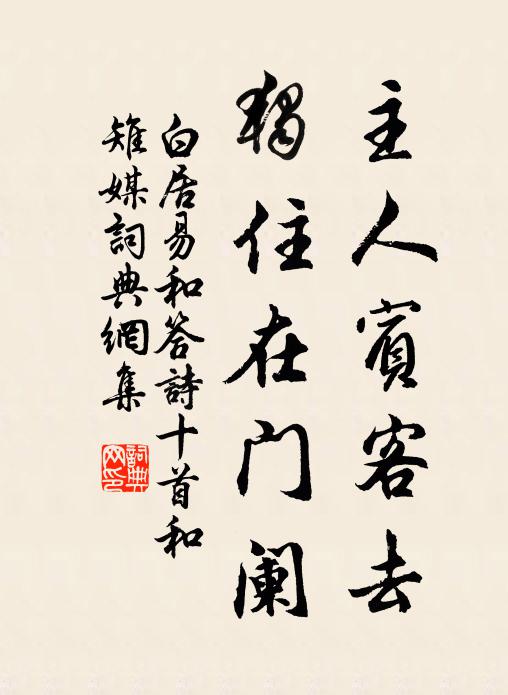 主人賓客去
獨住在门阑
白居易和答詩十首和
雉媒詞典網集
詞典网印